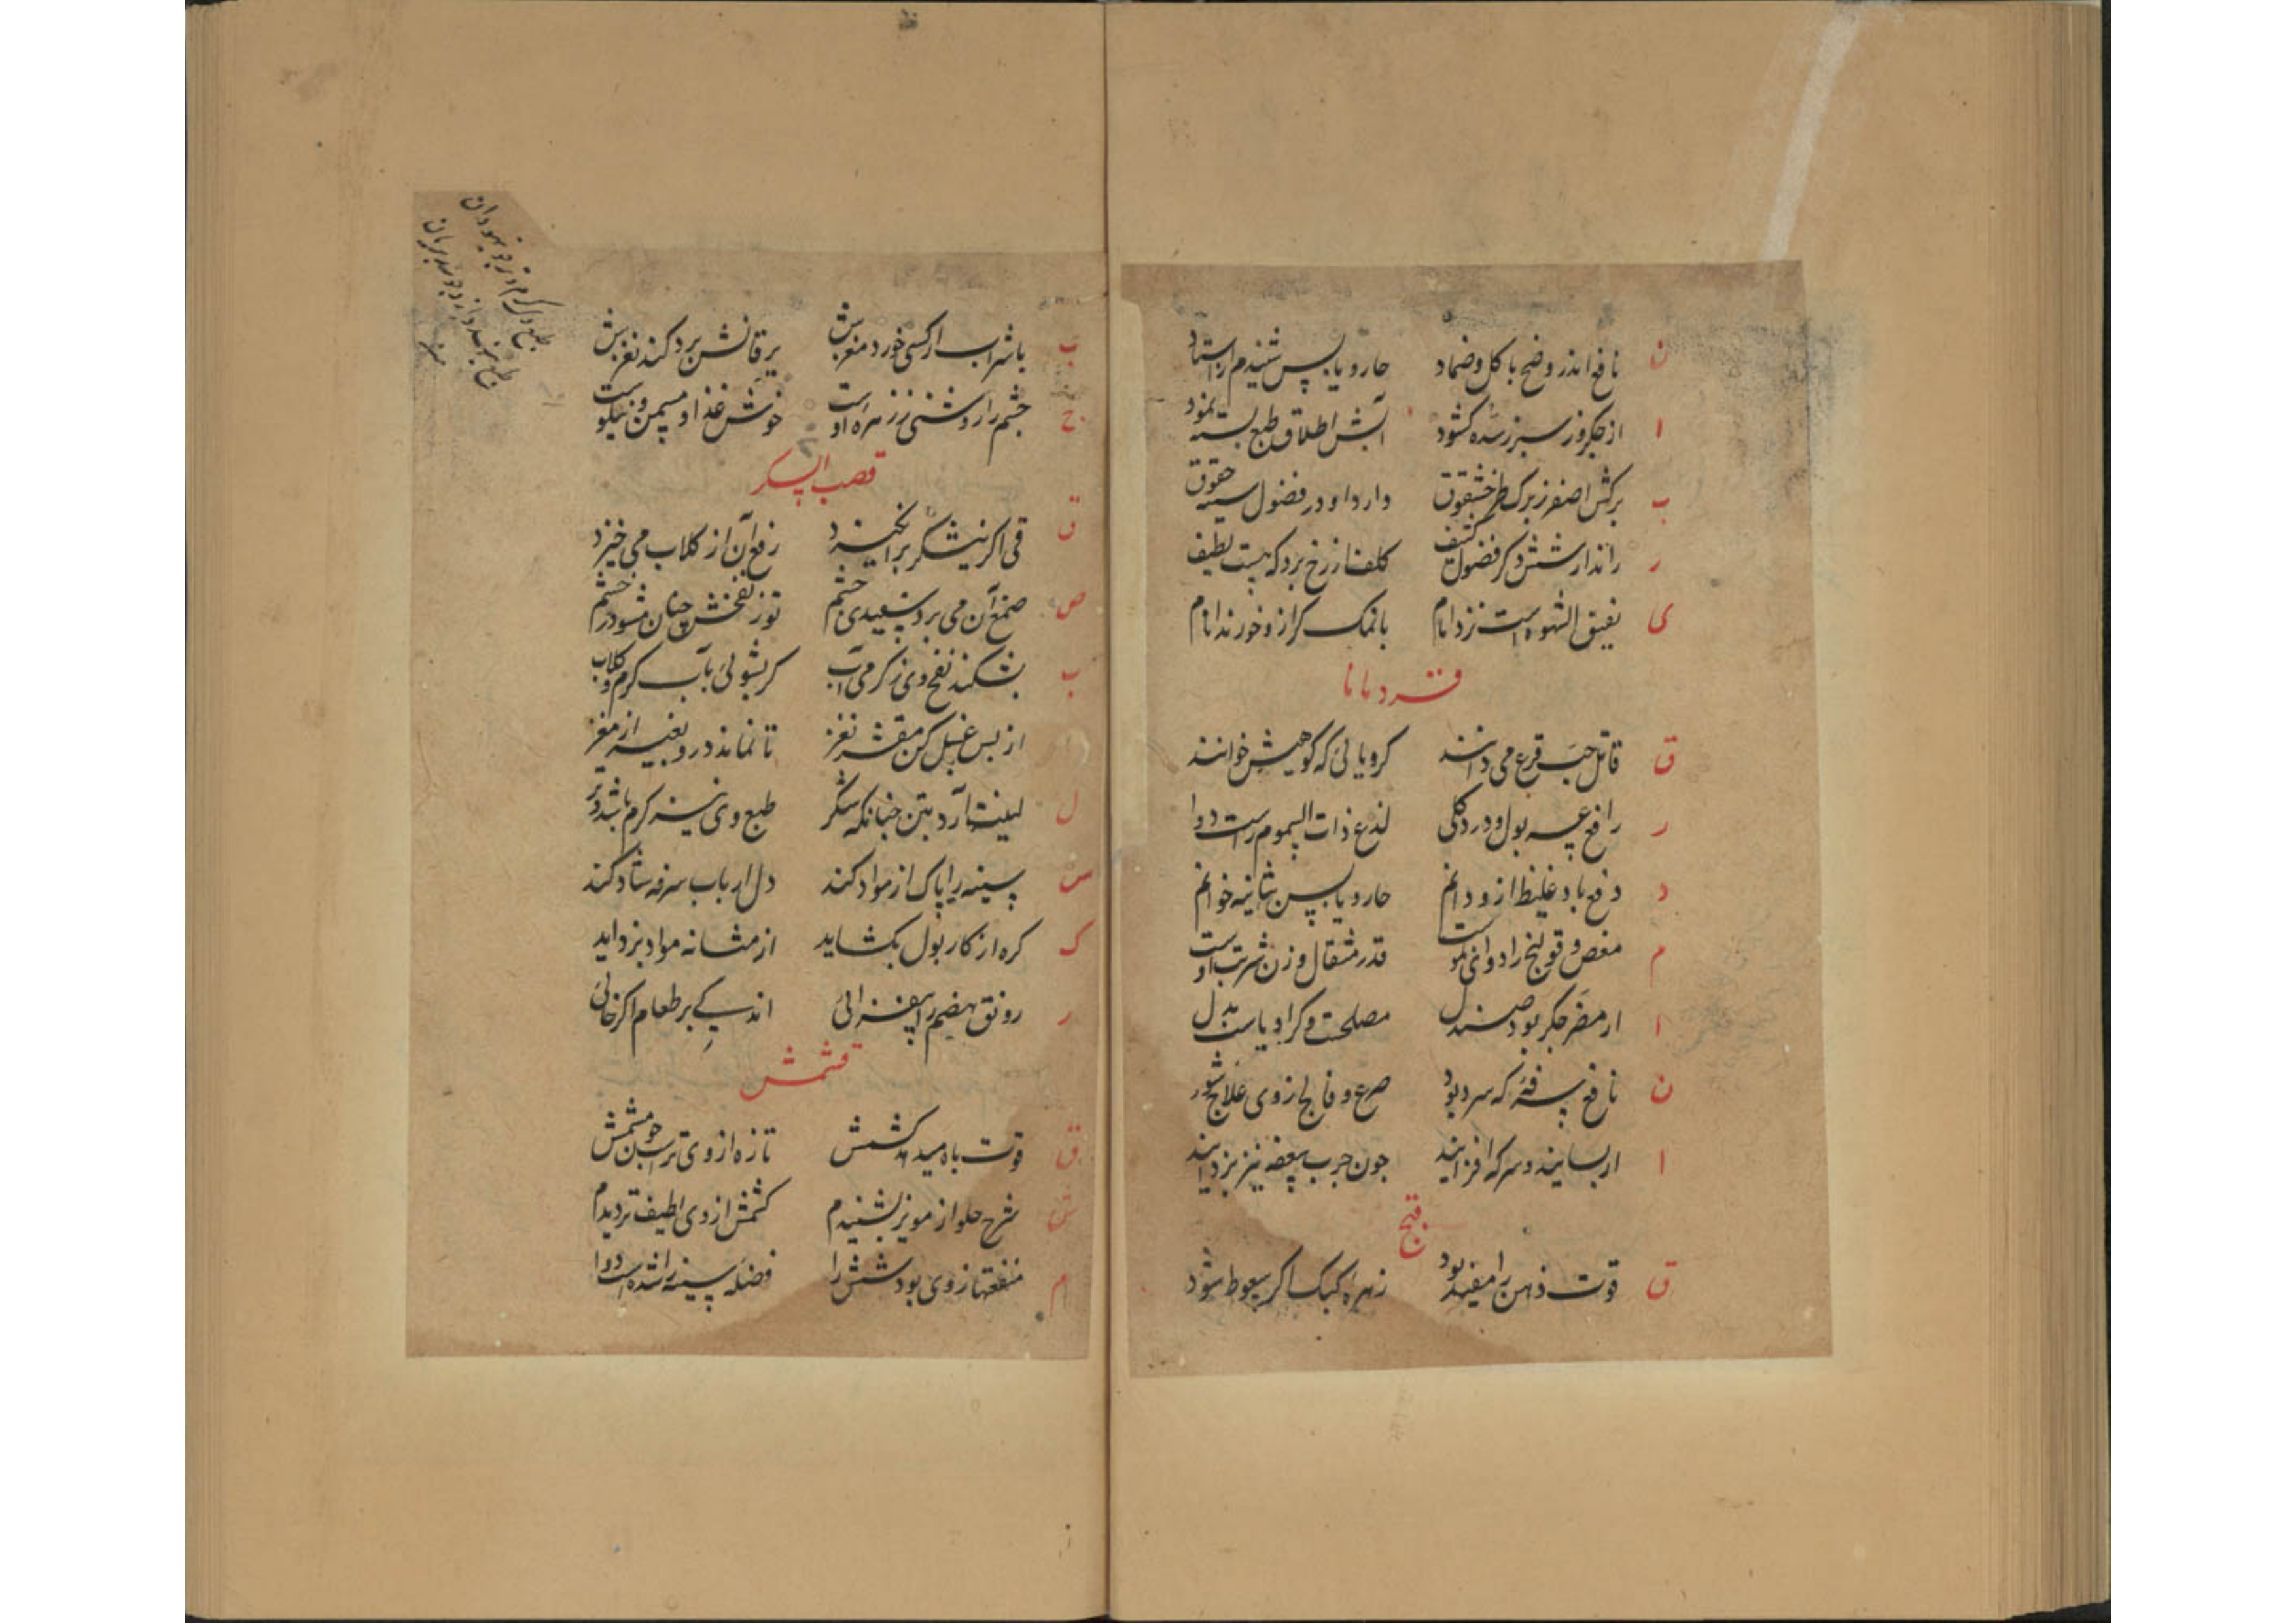 ن نافع اندر وضح با کل و ضماد حار و یابس شنیدم از استاد
ا از جکر وز سبرز سده کشود آبش اطلاق طبع بسته نمود
ب برکش اصفر ز برک طرخشقوق دارد او در فضول سینه حقوق
ر راند ادرارش دکر فضول کثیف کلف از رخ برد که هست لطیف
ی یفیق الشهوه است نزد انام با نمک کر ازو خورند انام
قردمانا
ق قاتل حب قرع می دانند کرویائی که کوهیش خوانند
ر رافع عسر بول و درد کلی لذع ذات السموم راست دوا
د دفع باد غلیظ ازو دانم حار و یابس بثانیه خوانم
م مغص و قولنج را دوای نکوست قدر مثقال وزن شربت اوست
ا ار مضر جکر بود صندل مصلحت وکراویاست بدل
ن نافع سرفه که سرد بود صرع و فالج ازوی علاج شود
ا ار بسایند و سرکه افزایند جون جرب سعفه نیز بزدایند
قبج
ق قوت ذهن را مفید بود زهره کبک اکر سعوط شود
ب با شراب ار کسی خورد مغزش یرقانش برد کند نغزش
ج جشم را روشنی ز زهره اوست خوش غذا و مسمن و نیکوست
قصب السکر
ق قی اکر نیشکر برانکیزد رفع آن از کلاب می خیزد
ص صمغ آن می برد سفیدی جشم تو ز نفخش جنان مشو در خشم
ب بشکند نفخ وی ز کرمی آب کر بشوئی بآب کرم و کلاب
از بس غسل کن مقشر نغز تا نماند درو بقیه از مغز
ل لینت آرد بتن جنانکه شکر طبع وی نیز کرم باشد و تر
س سینه را پاک از مواد کند دل ارباب سرفه شاد کند
ک کره از کار بول بکشاید از مثانه مواد بزداید
ر رونق هضم را بیفزائی اندکی بر طعام اکر خائی
قشمش
ق قوت باه میدهد کشمش تازه از وی تراست بن جو مشمش
ش شرح حلو از مویز بشنیدم کشمش از وی لطیف تر دیدم
م منفعتها ز وی بود شش را فضله سینه را شده است دوا